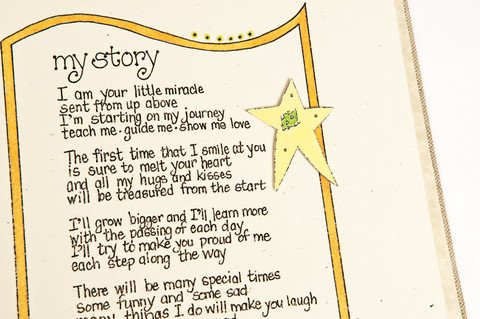 my story
I am your little miracle
sent from up above
I'm starting on my journey
teach me · guide me · show me love
The first time that I smile at you
is sure to melt your heart
and all my hugs and kisses
will be treasured from the start
I'll grow bigger and I'll learn more
with the passing of each day
I'll try to make you proud of me
each step along the way
There will be many special times
some funny and some sad
many things I do will make you laugh